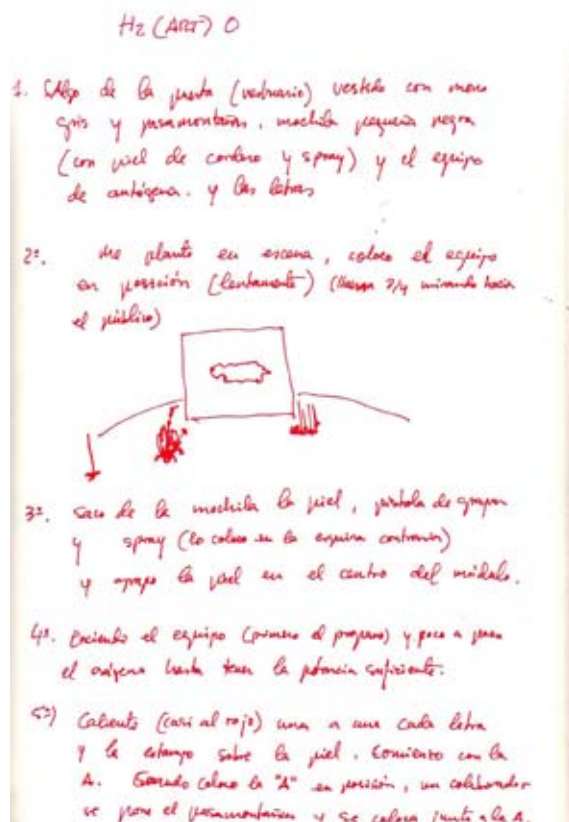 H2 (ART) O
1. Salgo de la puerta (vestuario) vestido con mono
gris y pasamontañas, mochila pequeña negra
(con piel de cordero y spray) y el equipo
de autógena. y las letras
2º. Me planto en escena, coloco el equipo
en posición (lentamente) (llama 3/4 mirando hacia
el público)
3º. Saco de la mochila la piel, pistola de grapas
y spray (lo coloco en la esquina contraria)
y grapo la piel en el centro del módulo.
4º. Enciendo el equipo (primero el propano) y poco a poco
el oxígeno hasta tener la potencia suficiente.
5º) Caliento (casi al rojo) una a una cada letra
y la estampo sobre la piel. Comienzo con la
A. Cuando coloco la "A" en posición, un colaborador
se pone el pasamontañas y se coloca junto a la A.